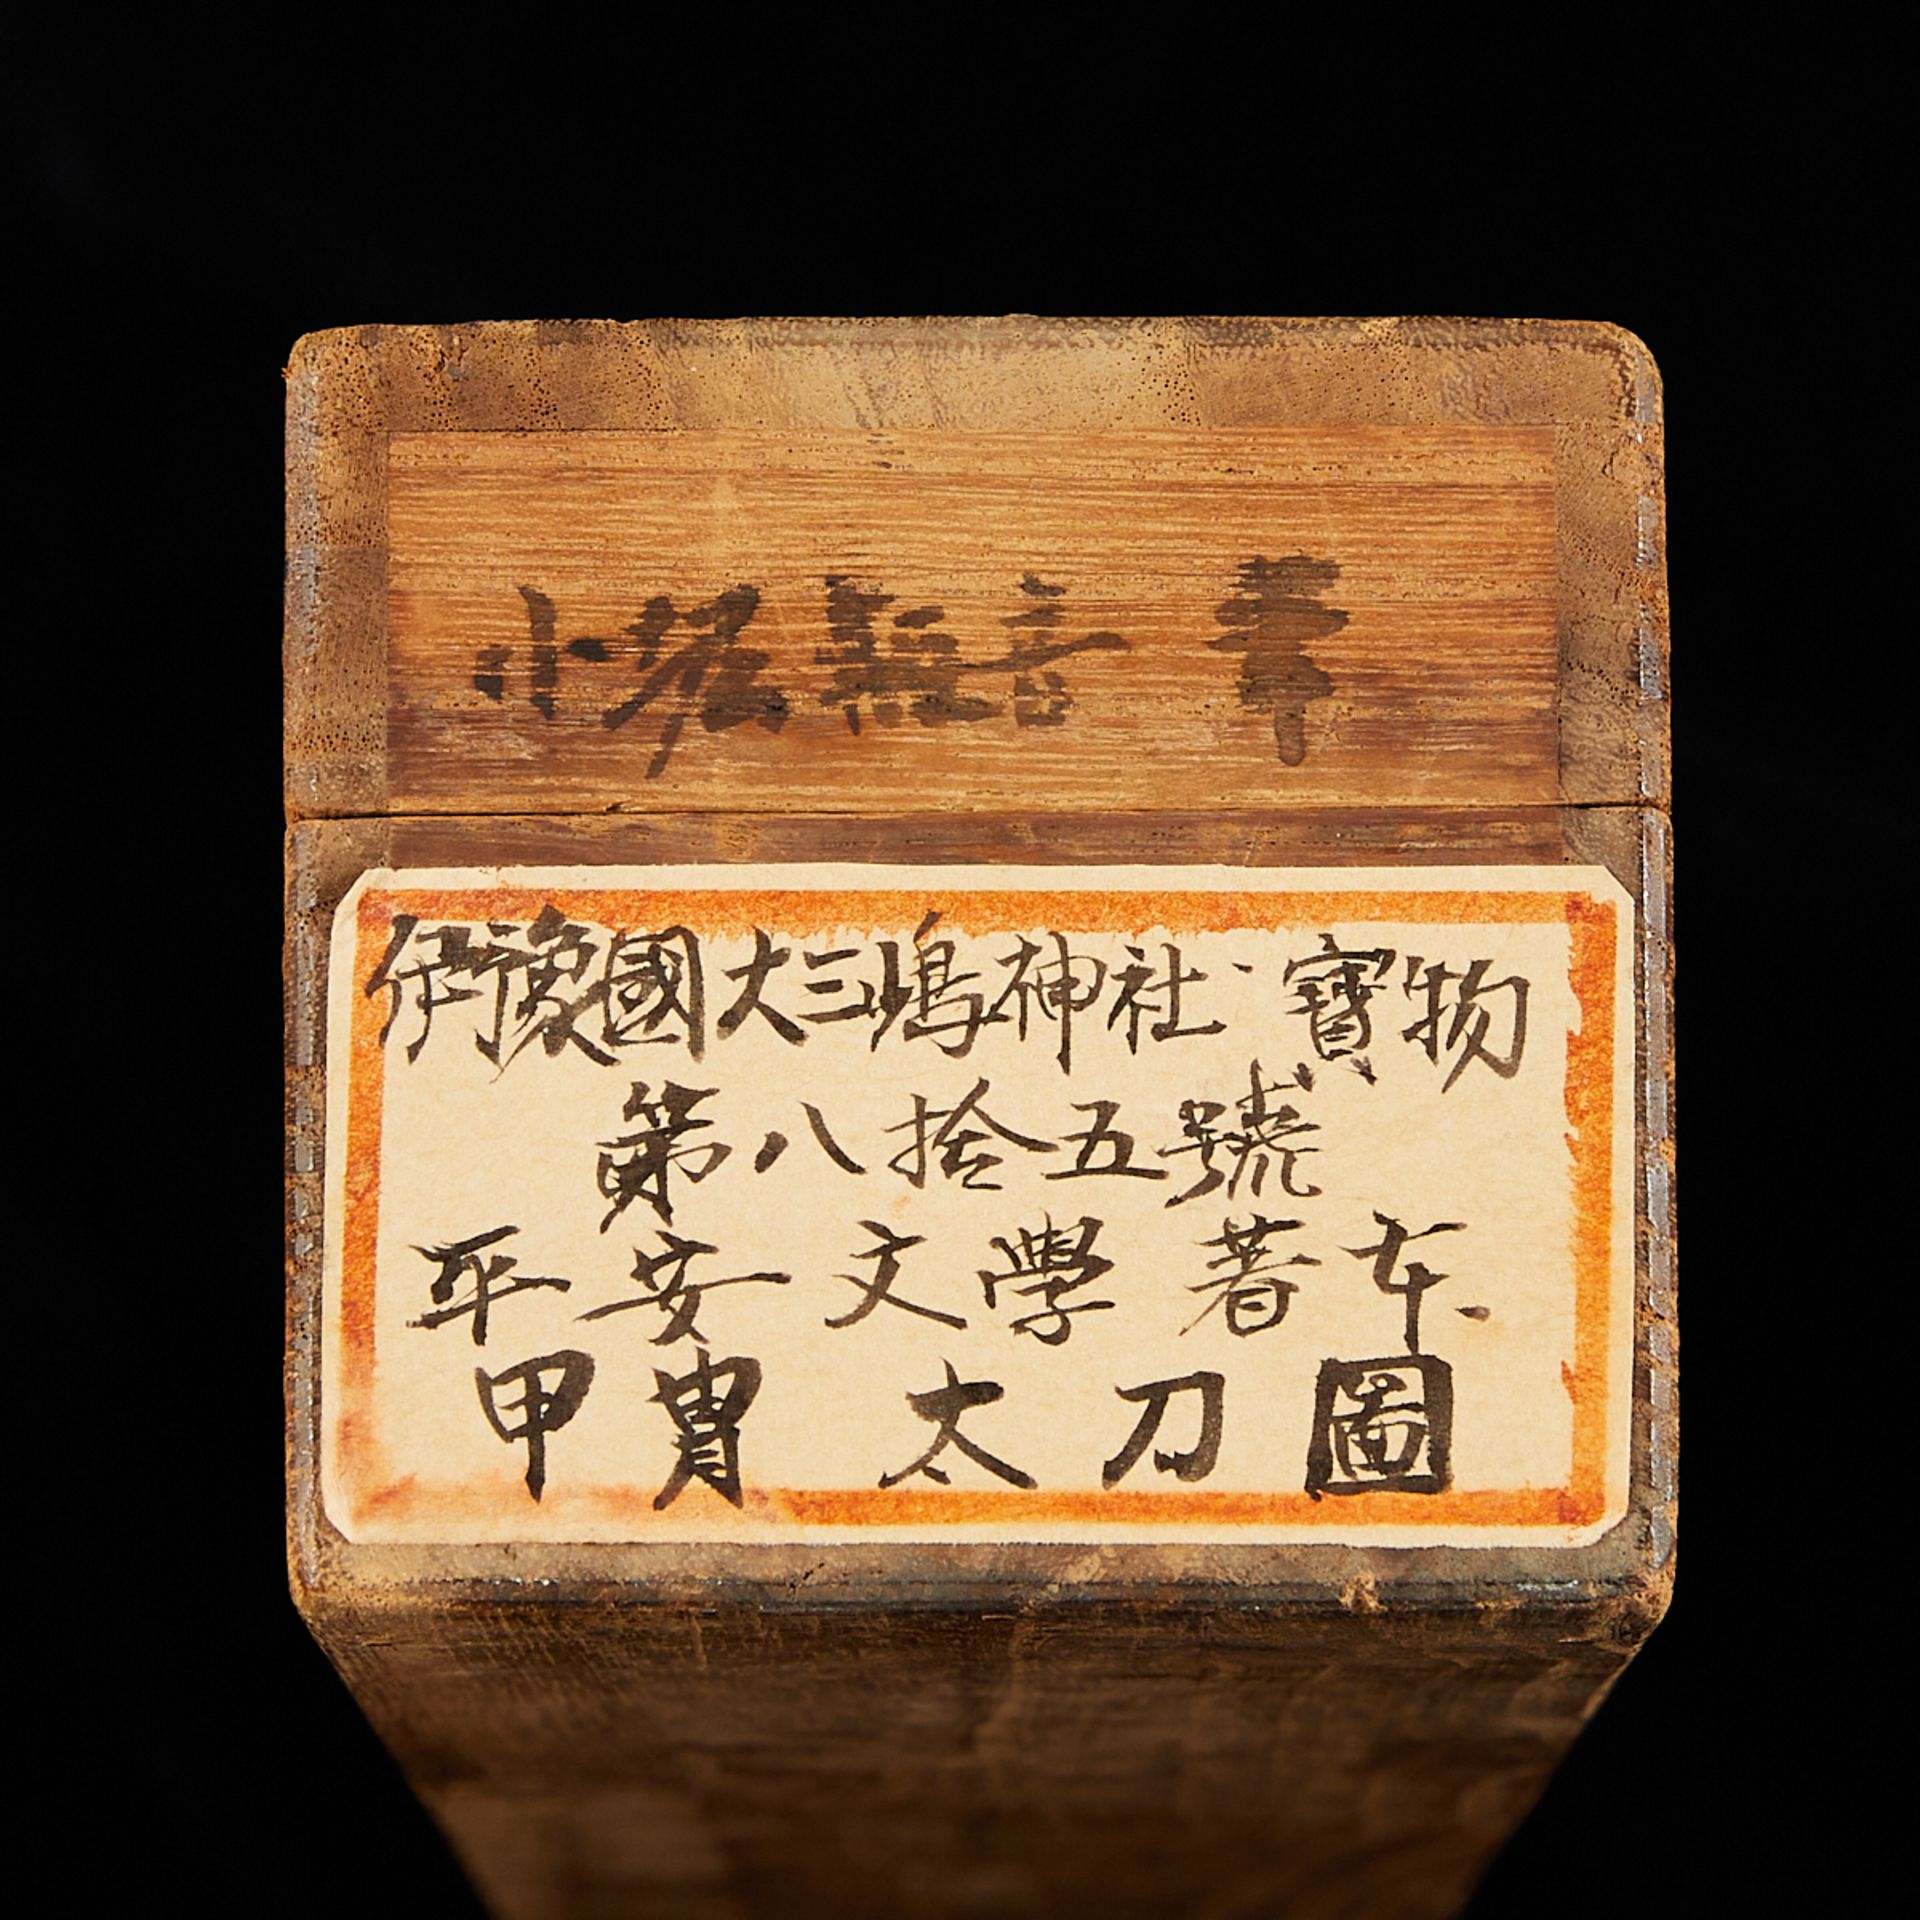 小堀鞆音 筆
伊豫國大三嶋神社 寶物
第八拾五號
平安文學著本
甲冑太刀圖